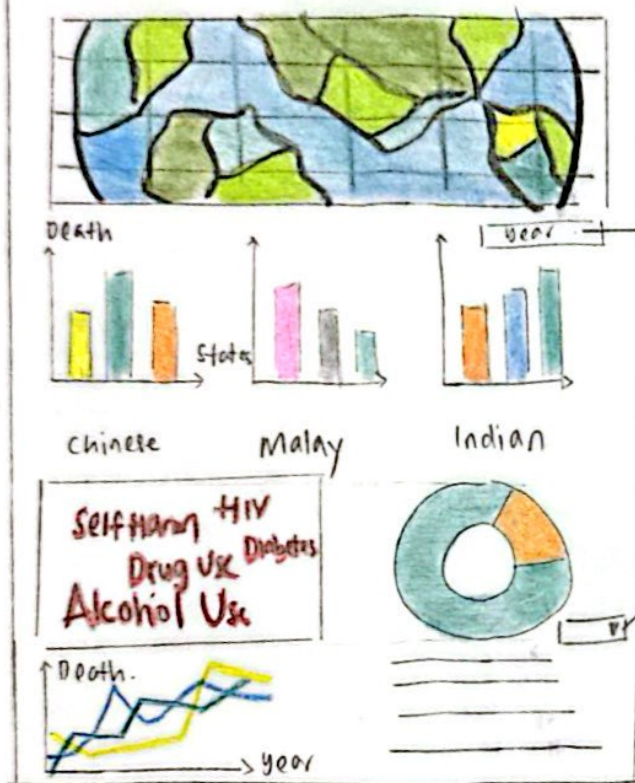 Death
year
States
Chinese
Malay
Indian
Self Harm HIV
Drug Use Diabetes
Alcohol Use
Death.
year